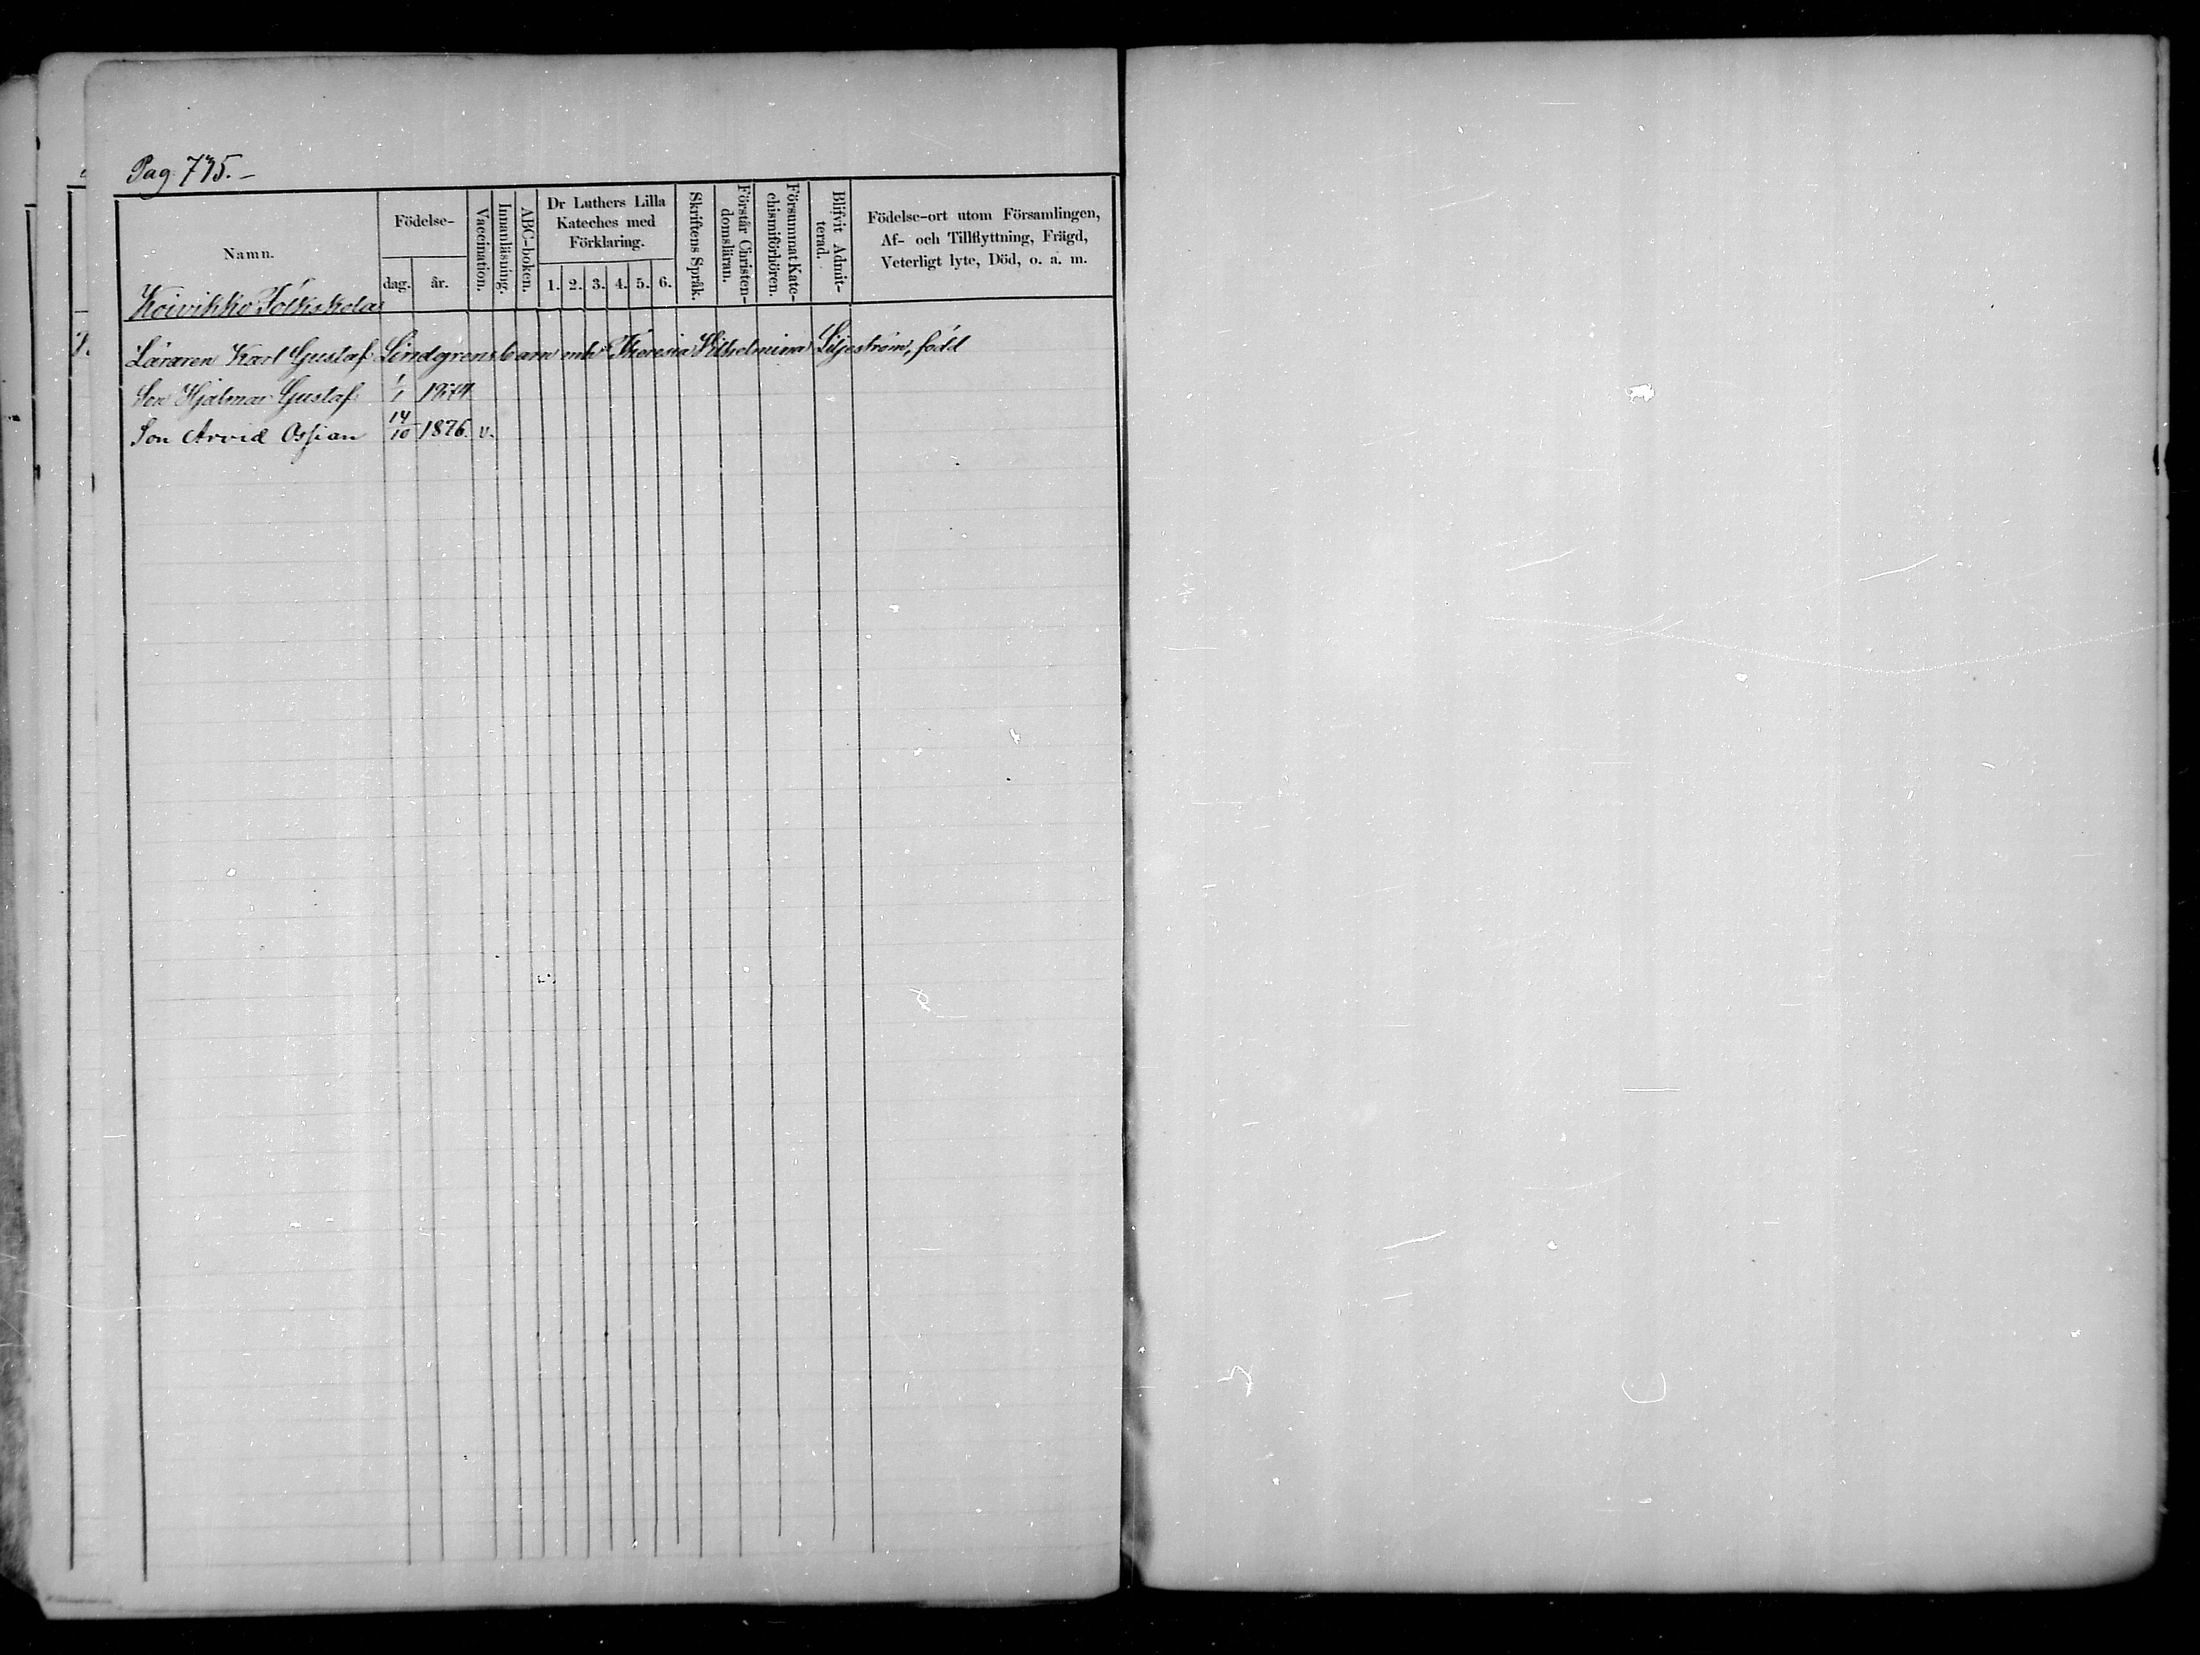 Pag. 735.-
Namn.
Födelse-
dag.
år.
Vaccination.
Innanläsning.
ABC-boken.
Dr Luthers Lilla
Kateches med
Förklaring.
1. 2. 3. 4. 5. 6.
Skriftens Språk.
Förstår Christen-
domsläran.
Försummat Kate-
chismiförhören.
Blifvit Admit-
terad.
Födelse-ort utom Församlingen,
Af- och Tillflyttning, Frägd,
Veterligt lyte, Död, o. a. m.
Koivikko Folkskola
Läraren Karl Gustaf Lindgrens barn mh Theresia Wilhelmina Liljeström, född
Son Hjalmar Gustaf 1/1
Son Arvid Ossian 14/10 1876. v.